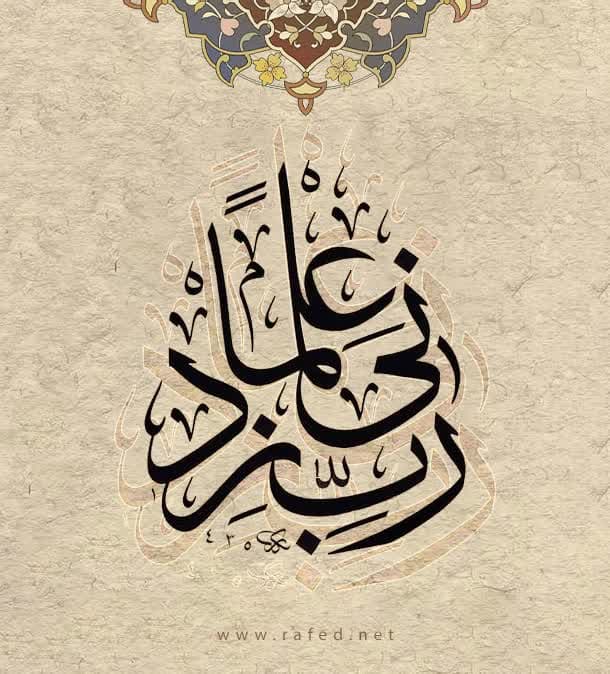 رَبِّ زِدْنِي عِلْمًا
www.rafed.net